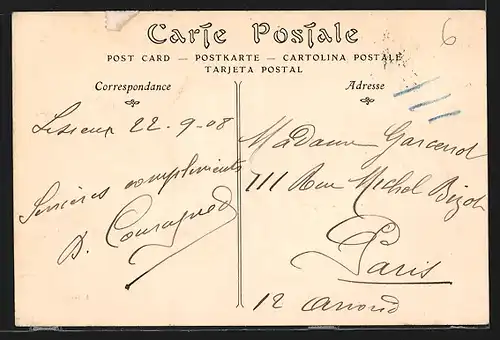 Carte Postale
POST CARD — POSTKARTE — CARTOLINA POSTALE
TARJETA POSTAL
Correspondance
Adresse
6
Lisieux 22-9-08
Sincères compliments
Madame
111 Rue Michel Bizot
Paris
12 Arrond